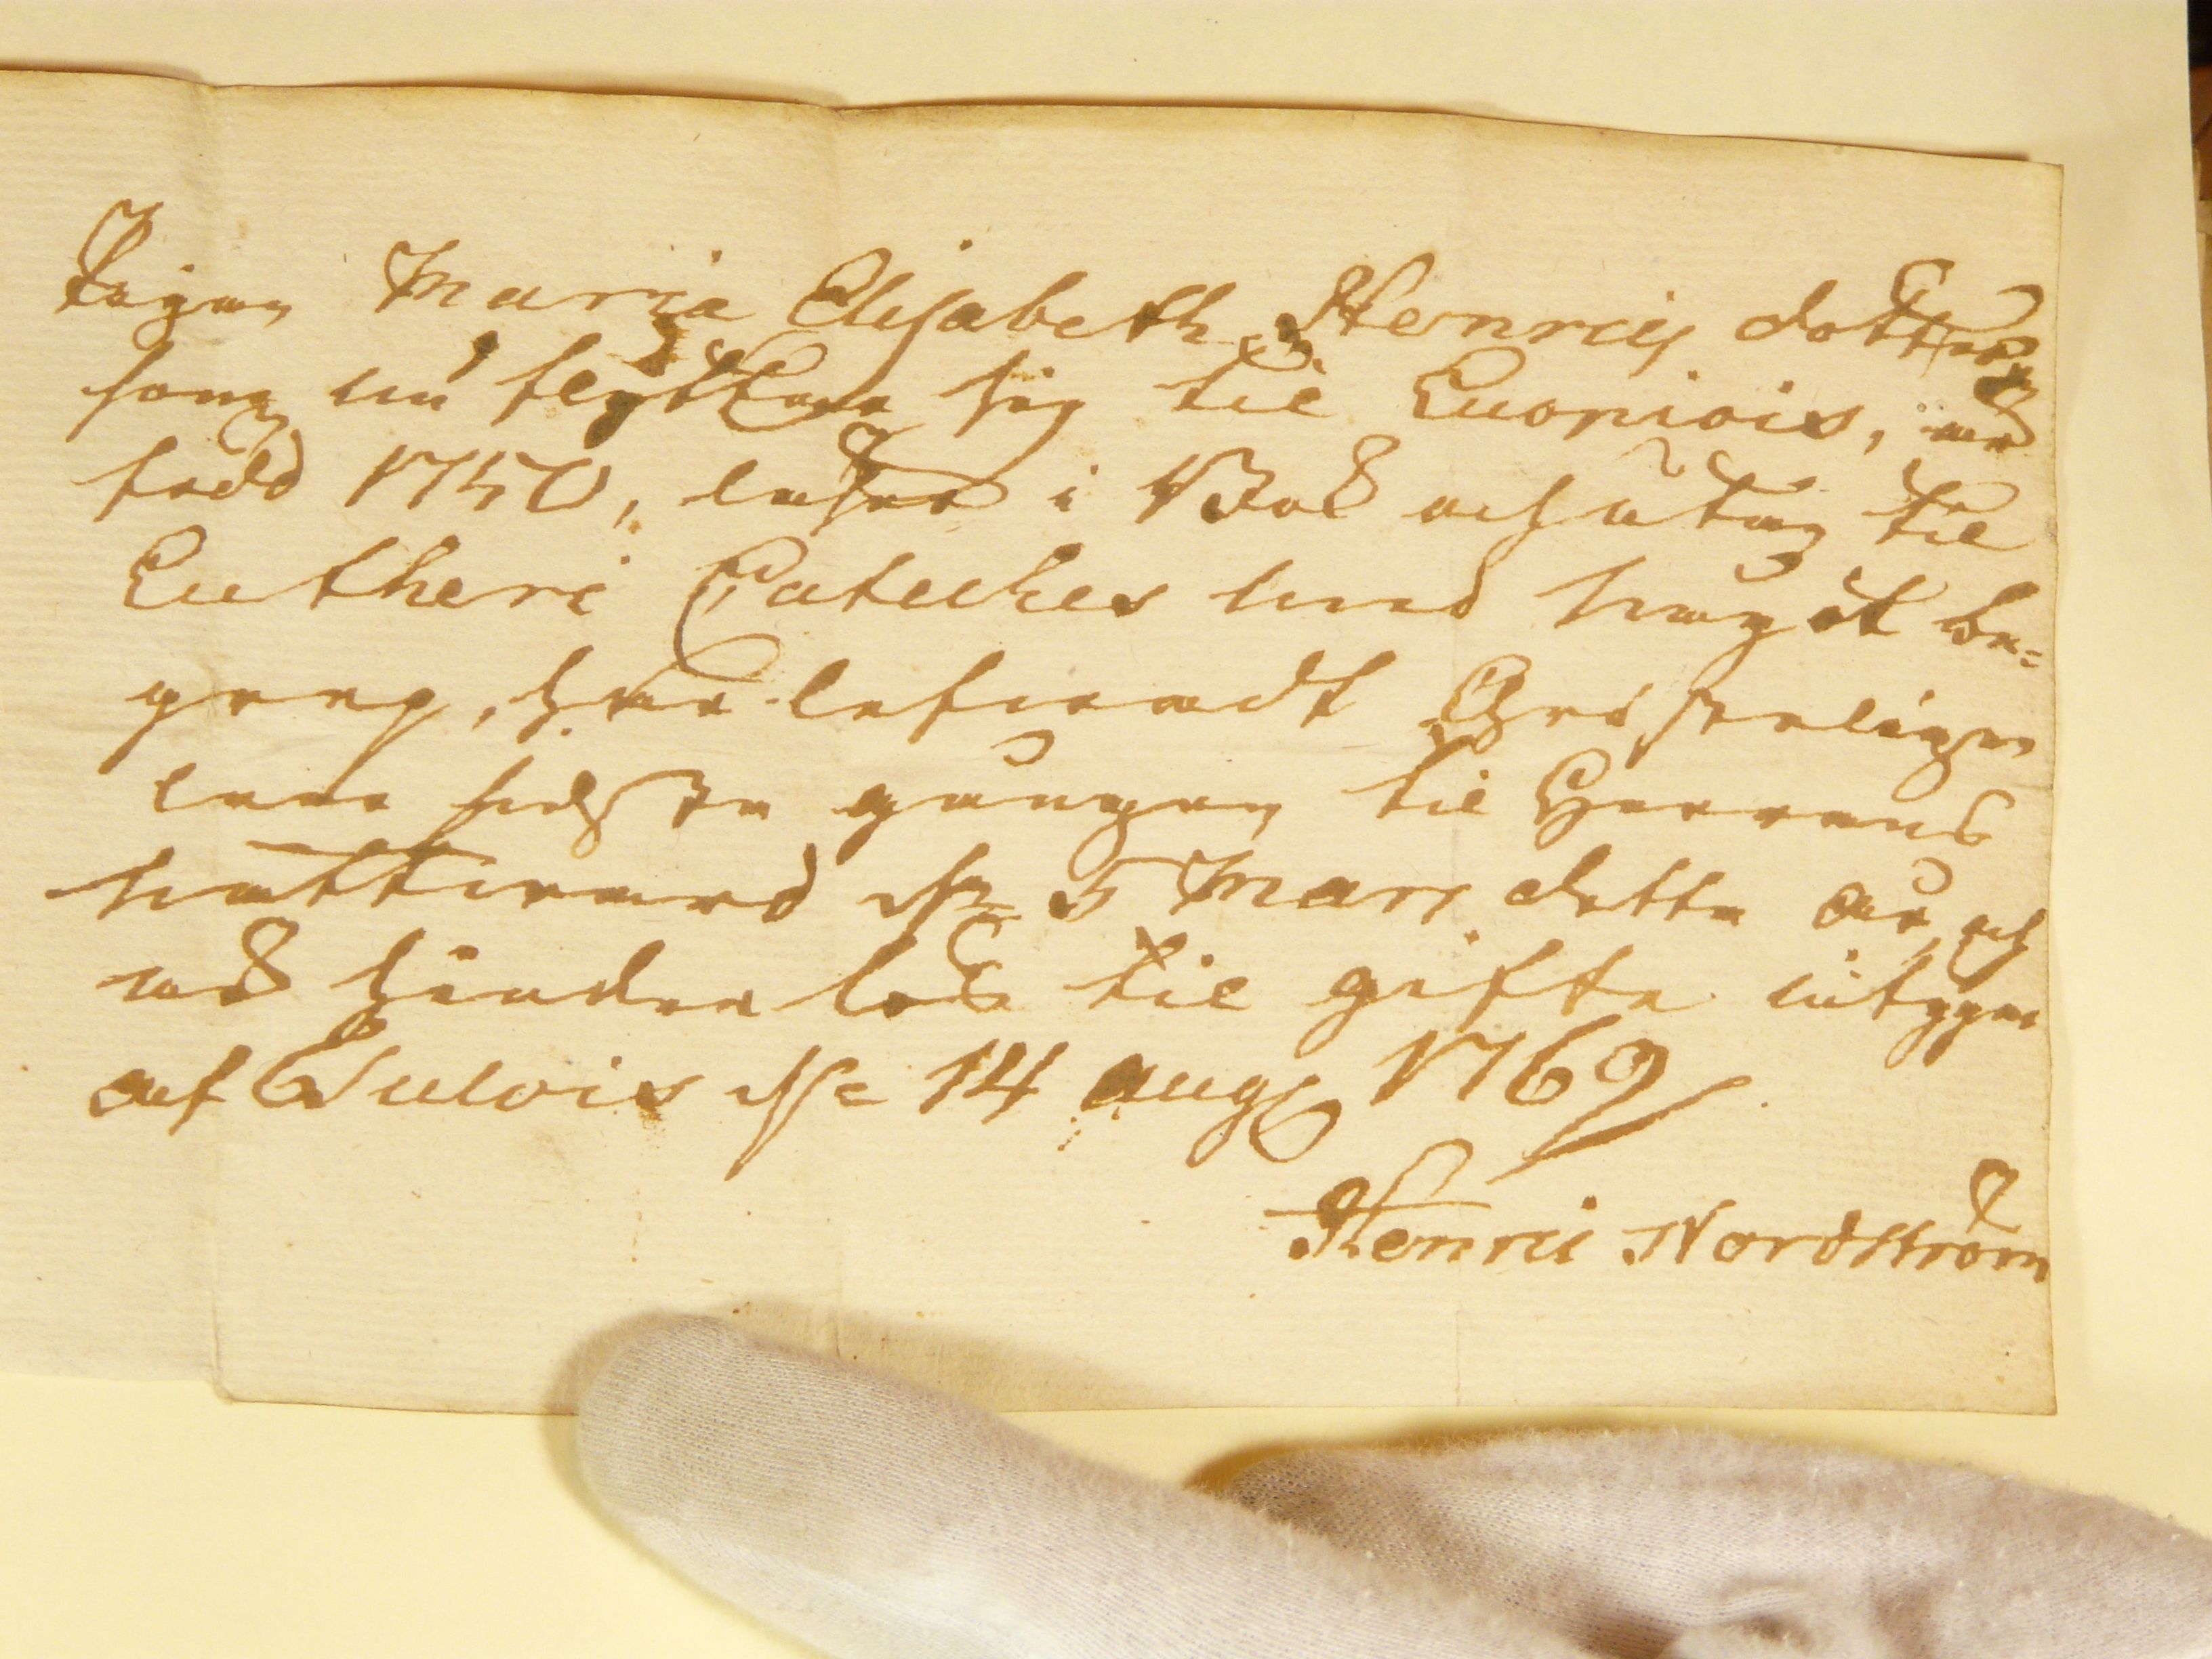 Pigan Maria Elisabeth Henrics dotter
som nu flyttar sig til Luopiois, är
född 1750, läser i Bok och utan til
Lutheri Cateches med något be-
grep, har lefwadt Christeligen
sidste gången til Herrans
nattward d. 5 Mars detta år, och
är hinderlös til gifte intygar
af Tulois d. 14 aug 1769
Henric Nordström